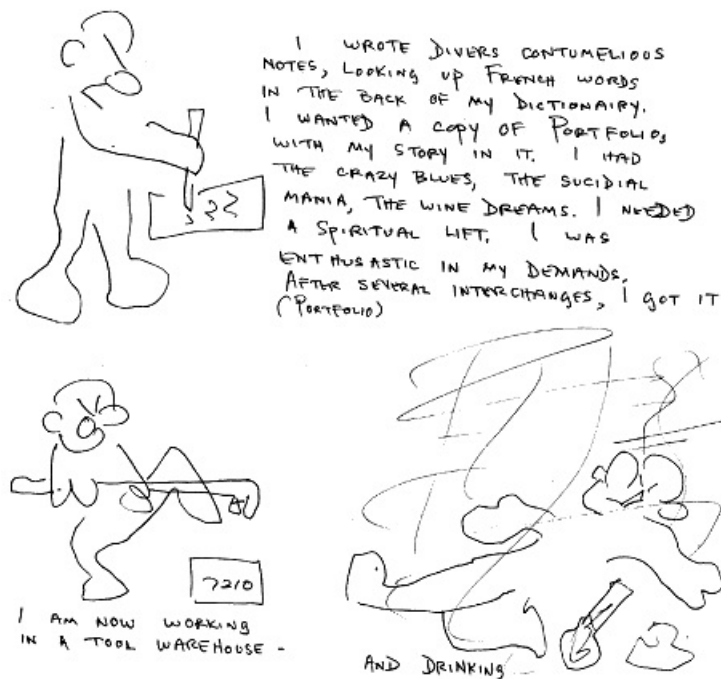 I WROTE DIVERS CONTUMELIOUS
NOTES, LOOKING UP FRENCH WORDS
IN THE BACK OF MY DICTIONAIRY.
I WANTED A COPY OF PORTFOLIO,
WITH MY STORY IN IT. I HAD
THE CRAZY BLUES, THE SUCIDIAL
MANIA, THE WINE DREAMS. I NEEDED
A SPIRITUAL LIFT. I WAS
ENTHUSASTIC IN MY DEMANDS.
AFTER SEVERAL INTERCHANGES, I GOT IT
(PORTFOLIO)
7210
I AM NOW WORKING
IN A TOOL WAREHOUSE -
AND DRINKING --